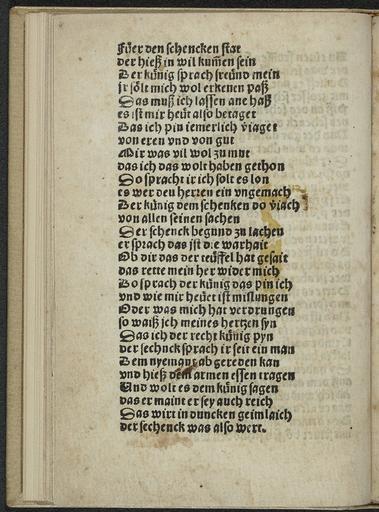 Füer den schencken stat
der hieß in wil kum̄en sein
Der künig sprach freünd mein
ir sölt mich wol erkenen paß
Das muß ich lassen ane haß
es ist mir heüt also betaget
Das ich pin iemerlich v̈iaget
von eren vnd von gut
Mir was vil wol zu mut
das ich das wolt haben gethon
So spracht ir ich solt es lon
es wer den herren ein vngemach
Der künig dem schenken do v̈iach
von allen seinen sachen
Der schenck begund zu lachen
er sprach das ist die warhait
Ob dir das der teüffel hat gesait
das rette mein her wider mich
Do sprach der künig das pin ich
vnd wie mir heüet ist mislungen
Oder was mich hat verdrungen
so waiß ich meines hertzen syn
Das ich der recht künig pyn
der sechnck sprach ir seit ein man
Dem nyemant ab gereden kan
vnd hieß dem armen essen tragen
Und wolt es dem künig sagen
das er maint er sey auch reich
Das wirt in duncken geimlaich
der sechenck was also wert.